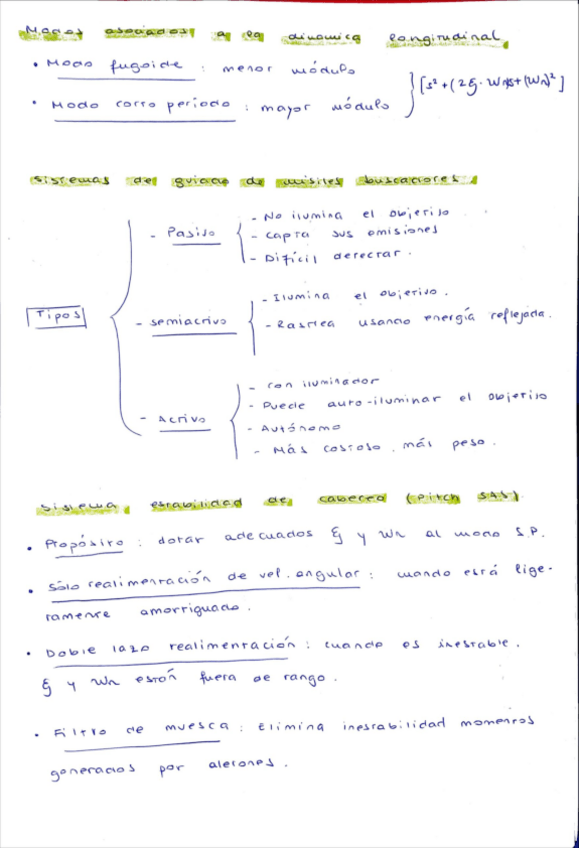 Modos asociados a la dinamica longitudinal
• Modo fugoide : menor módulo
• Modo corto periodo : mayor módulo
[s² + (2ξ·Wn)s + (Wn)²]
Sistemas de guiado de misiles buscadores
Tipos
- Pasivo
- No ilumina el objetivo
- Capta sus emisiones
- Difícil detectar.
- semiactivo
- Ilumina el objetivo.
- Rastrea usando energía reflejada.
- Activo
- Con iluminador
- Puede auto-iluminar el objetivo
- Autónomo
- Más costoso, más peso.
Sistema estabilidad de cabeceo (Pitch SAS)
• Propósito : dotar adecuados ξ y Wn al modo S.P.
• Sólo realimentación de vel. angular : cuando está lige-
ramente amortiguado.
• Doble lazo realimentación : cuando es inestable.
ξ y Wn están fuera de rango.
• Filtro de muesca : Elimina inestabilidad momentos
generados por alerones.